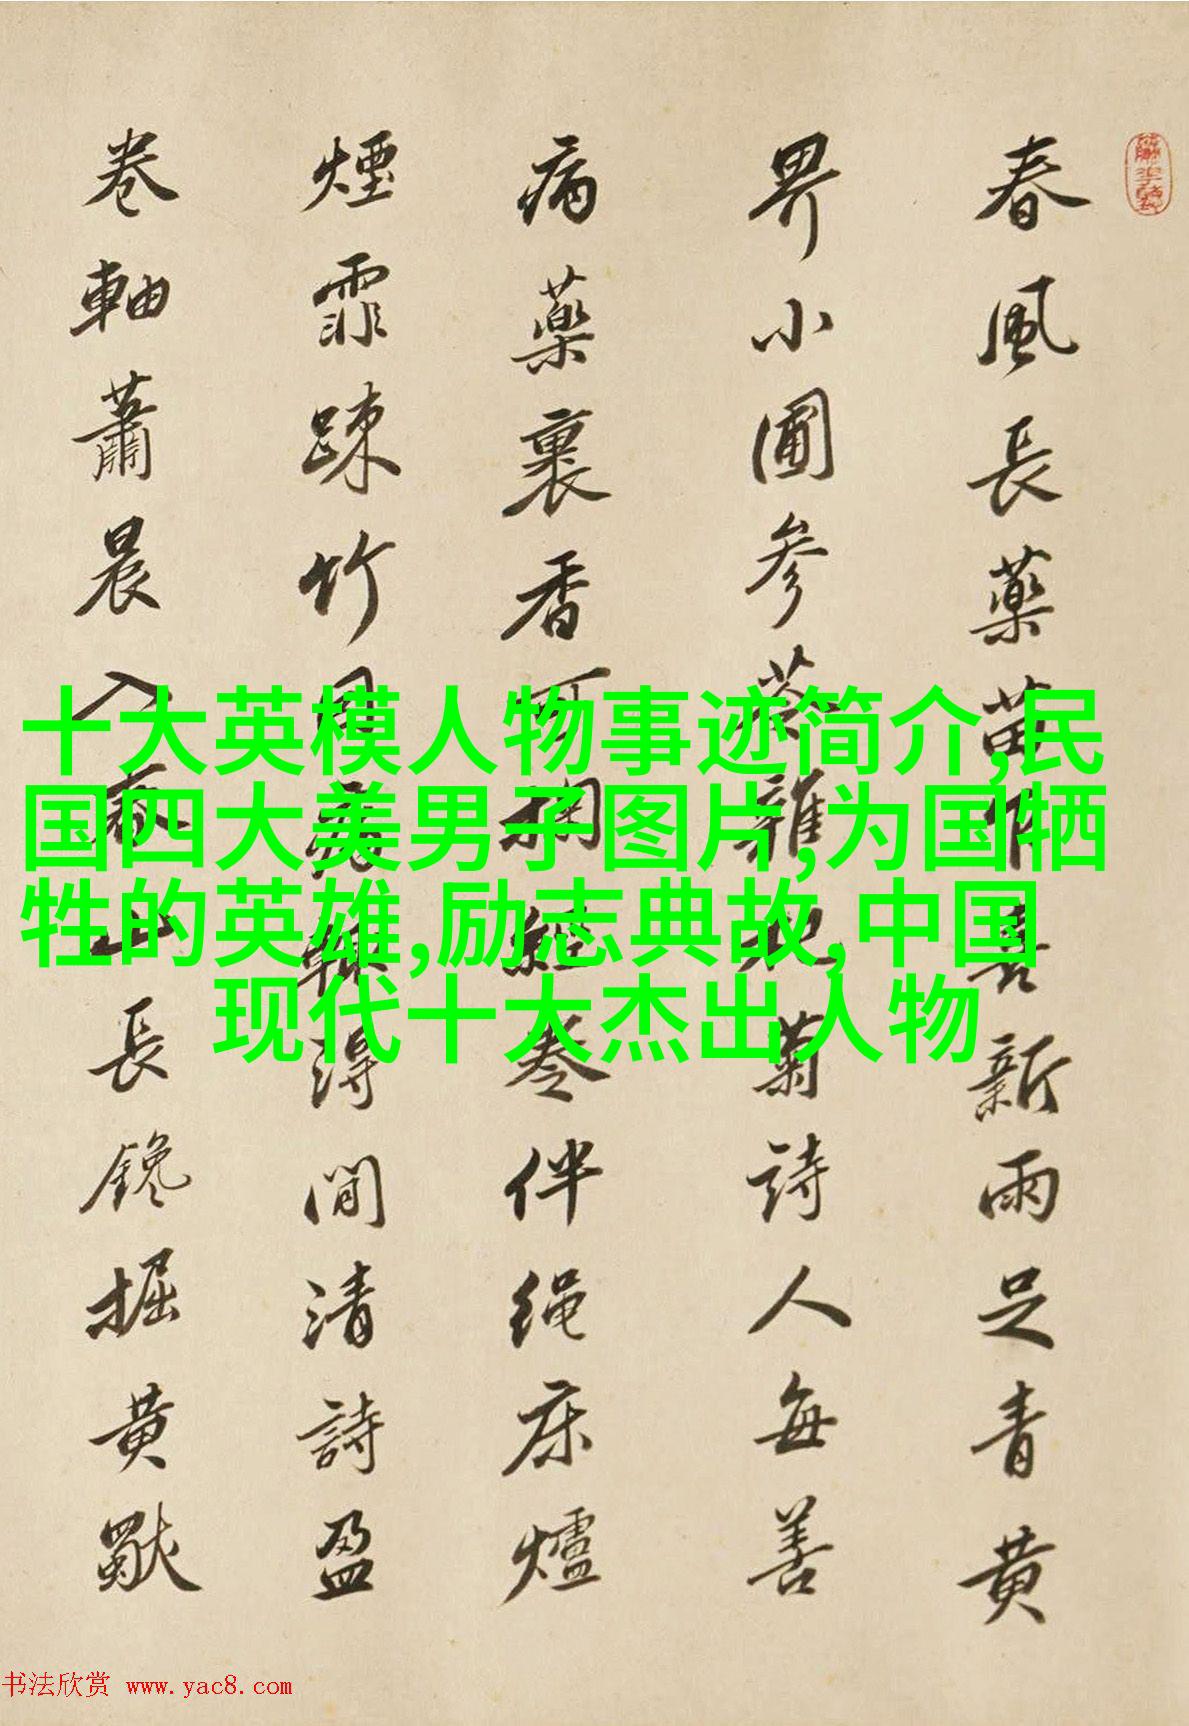 春風長藥苗喜新雨足青黃
界小圃参苓雜杞菊詩人每善
病藥裹香可掬經卷伴绳床爐
煙霏踈竹得閒清詩盈
卷軸蕭晨入春山長鑱掘黃
十大英模人物事迹简介,民
国四大美男子图片,为国牺
牲的英雄,励志典故,中国
现代十大杰出人物
书法欣赏 www.yac8.com